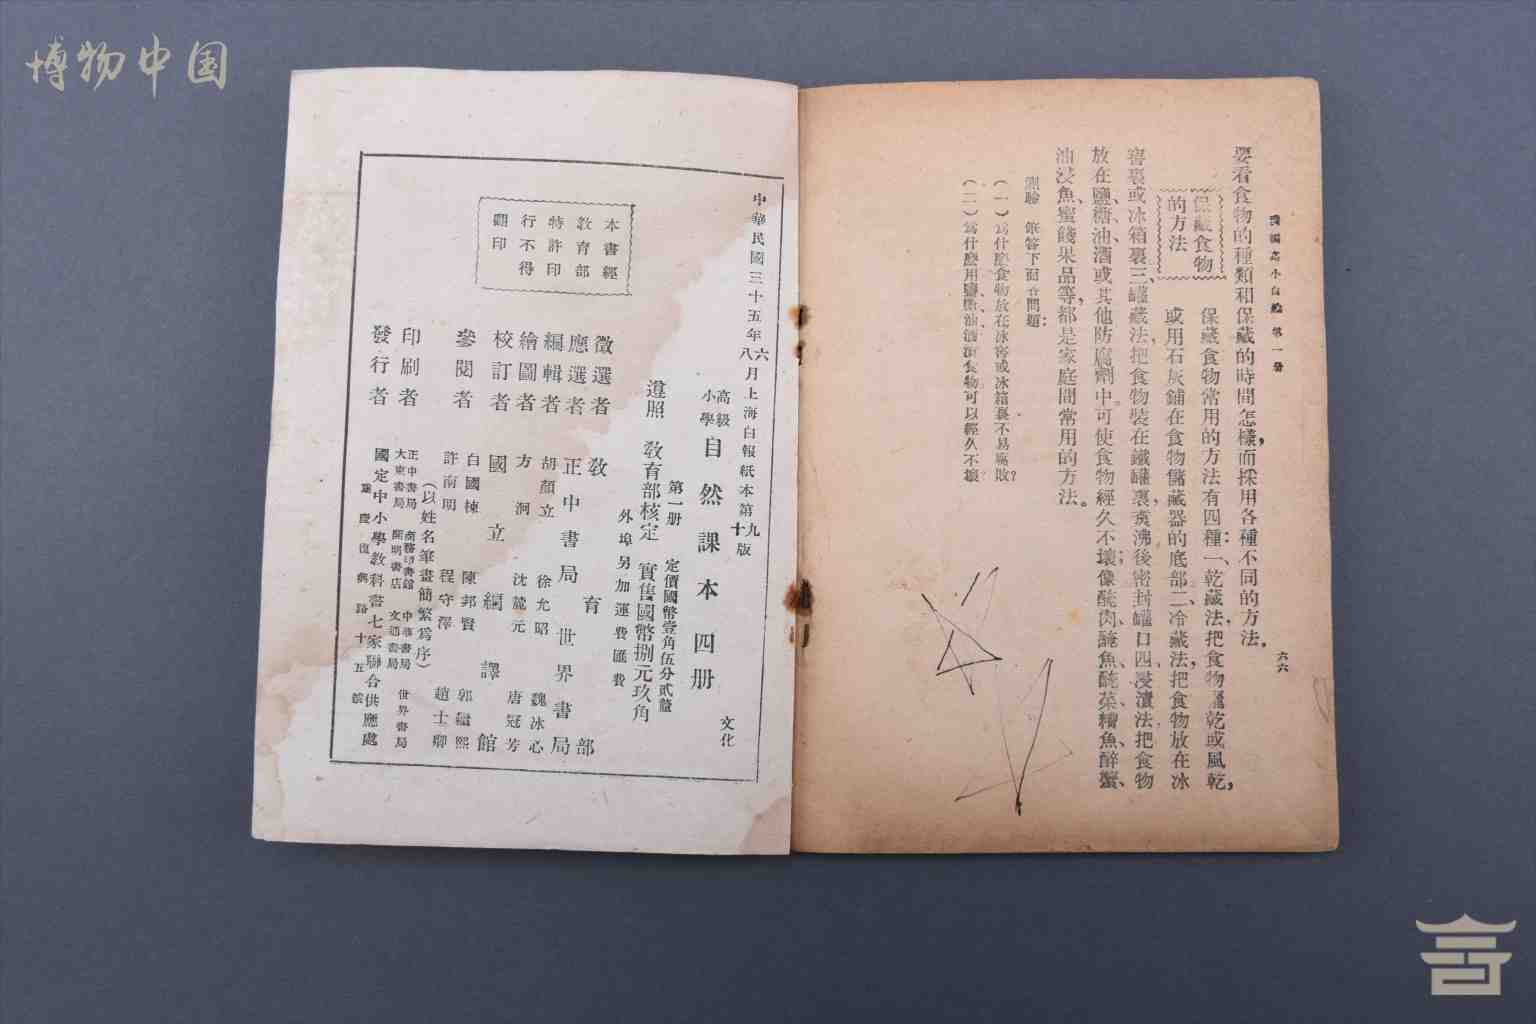 博物中国
國編高小自然 第一册
六六
要看食物的種類和保藏的時間怎樣，而採用各種不同的方法。
保藏食物
的方法
保藏食物常用的方法有四種：一、乾藏法，把食物曬乾或風乾，
或用石灰鋪在食物儲藏器的底部；二、冷藏法，把食物放在冰
窖裏或冰箱裏；三、罐藏法，把食物裝在鐵罐裏，煑沸後密封罐口；四、浸漬法，把食物
放在鹽、糖、油、酒或其他防腐劑中，可使食物經久不壞；像醃肉、醃魚、醃菜、糟魚、醉蟹、
油浸魚、蜜餞果品等，都是家庭間常用的方法。
測驗 㨂答下面各問題：
(一)爲什麽食物放在冰窖或冰箱裏不易腐敗？
(二)爲什麽用鹽、糖、油、酒漬食物可以經久不壞
中華民國三十五年六八月上海白報紙本第九十版
高級
小學
自然課本四册
文化
第一册 定價國幣壹角伍分貳釐
遵照 教育部核定 實售國幣捌元玖角
外埠另加運費匯費
徵選者 教育部
應選者 正中書局 世界書局
編輯者 胡顏立 徐允昭 魏冰心
繪圖者 方洞 沈麓元 唐冠芳
校訂者 國立編譯館
參閱者 白國棟 陳邦賢 郭繼熙
許南明 程守澤 趙士卿
(以姓名筆畫簡繁爲序)
印刷者 正中書局 商務印書館 中華書局 世界書局
大東書局 開明書店 文通書局
發行者 國定中小學教科書七家聯合供應處
重慶復興路十五號
本書經
教育部
特許印
行不得
翻印